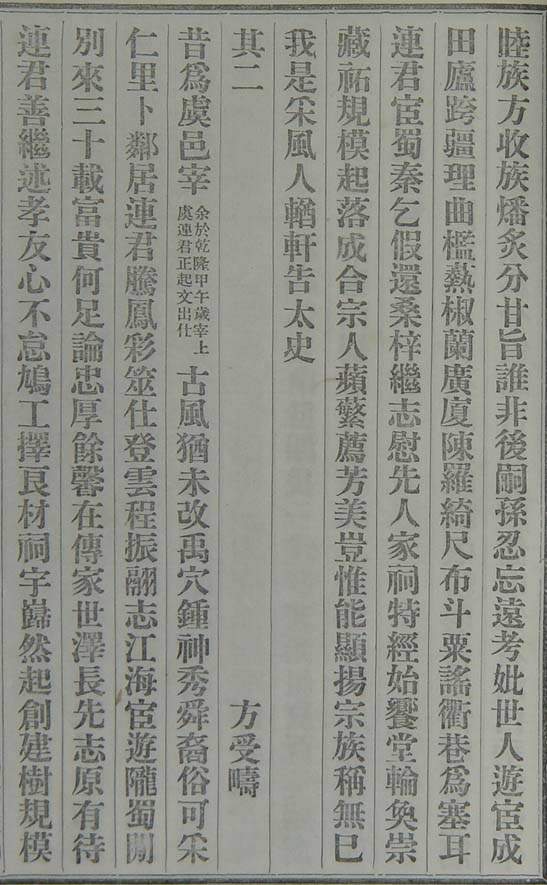 睦族方收族燔炙分甘旨誰非後嗣孫忍忘遠考妣世人遊宦成
田廬跨疆理曲檻熱椒蘭廣廈陳羅綺尺布斗粟謠衢巷為塞耳
連君宦蜀秦乞假還桑梓繼志慰先人家祠特經始饗堂輪奐崇
藏祏規模起落成合宗人蘋蘩薦芳美豈惟能顯揚宗族稱無已
我是采風人輶軒告太史
其二 方受疇
昔為虞邑宰余於乾隆甲午歲宰上虞連君正起文出仕古風猶未改禹穴鍾神秀舜裔俗可采
仁里卜鄰居連君騰鳳彩筮仕登雲程振翮志江海宦遊隴蜀間
別來三十載富貴何足論忠厚餘馨在傳家世澤長先志原有待
連君善繼述孝友心不怠鳩工擇良材祠宇巋然起創建樹規模